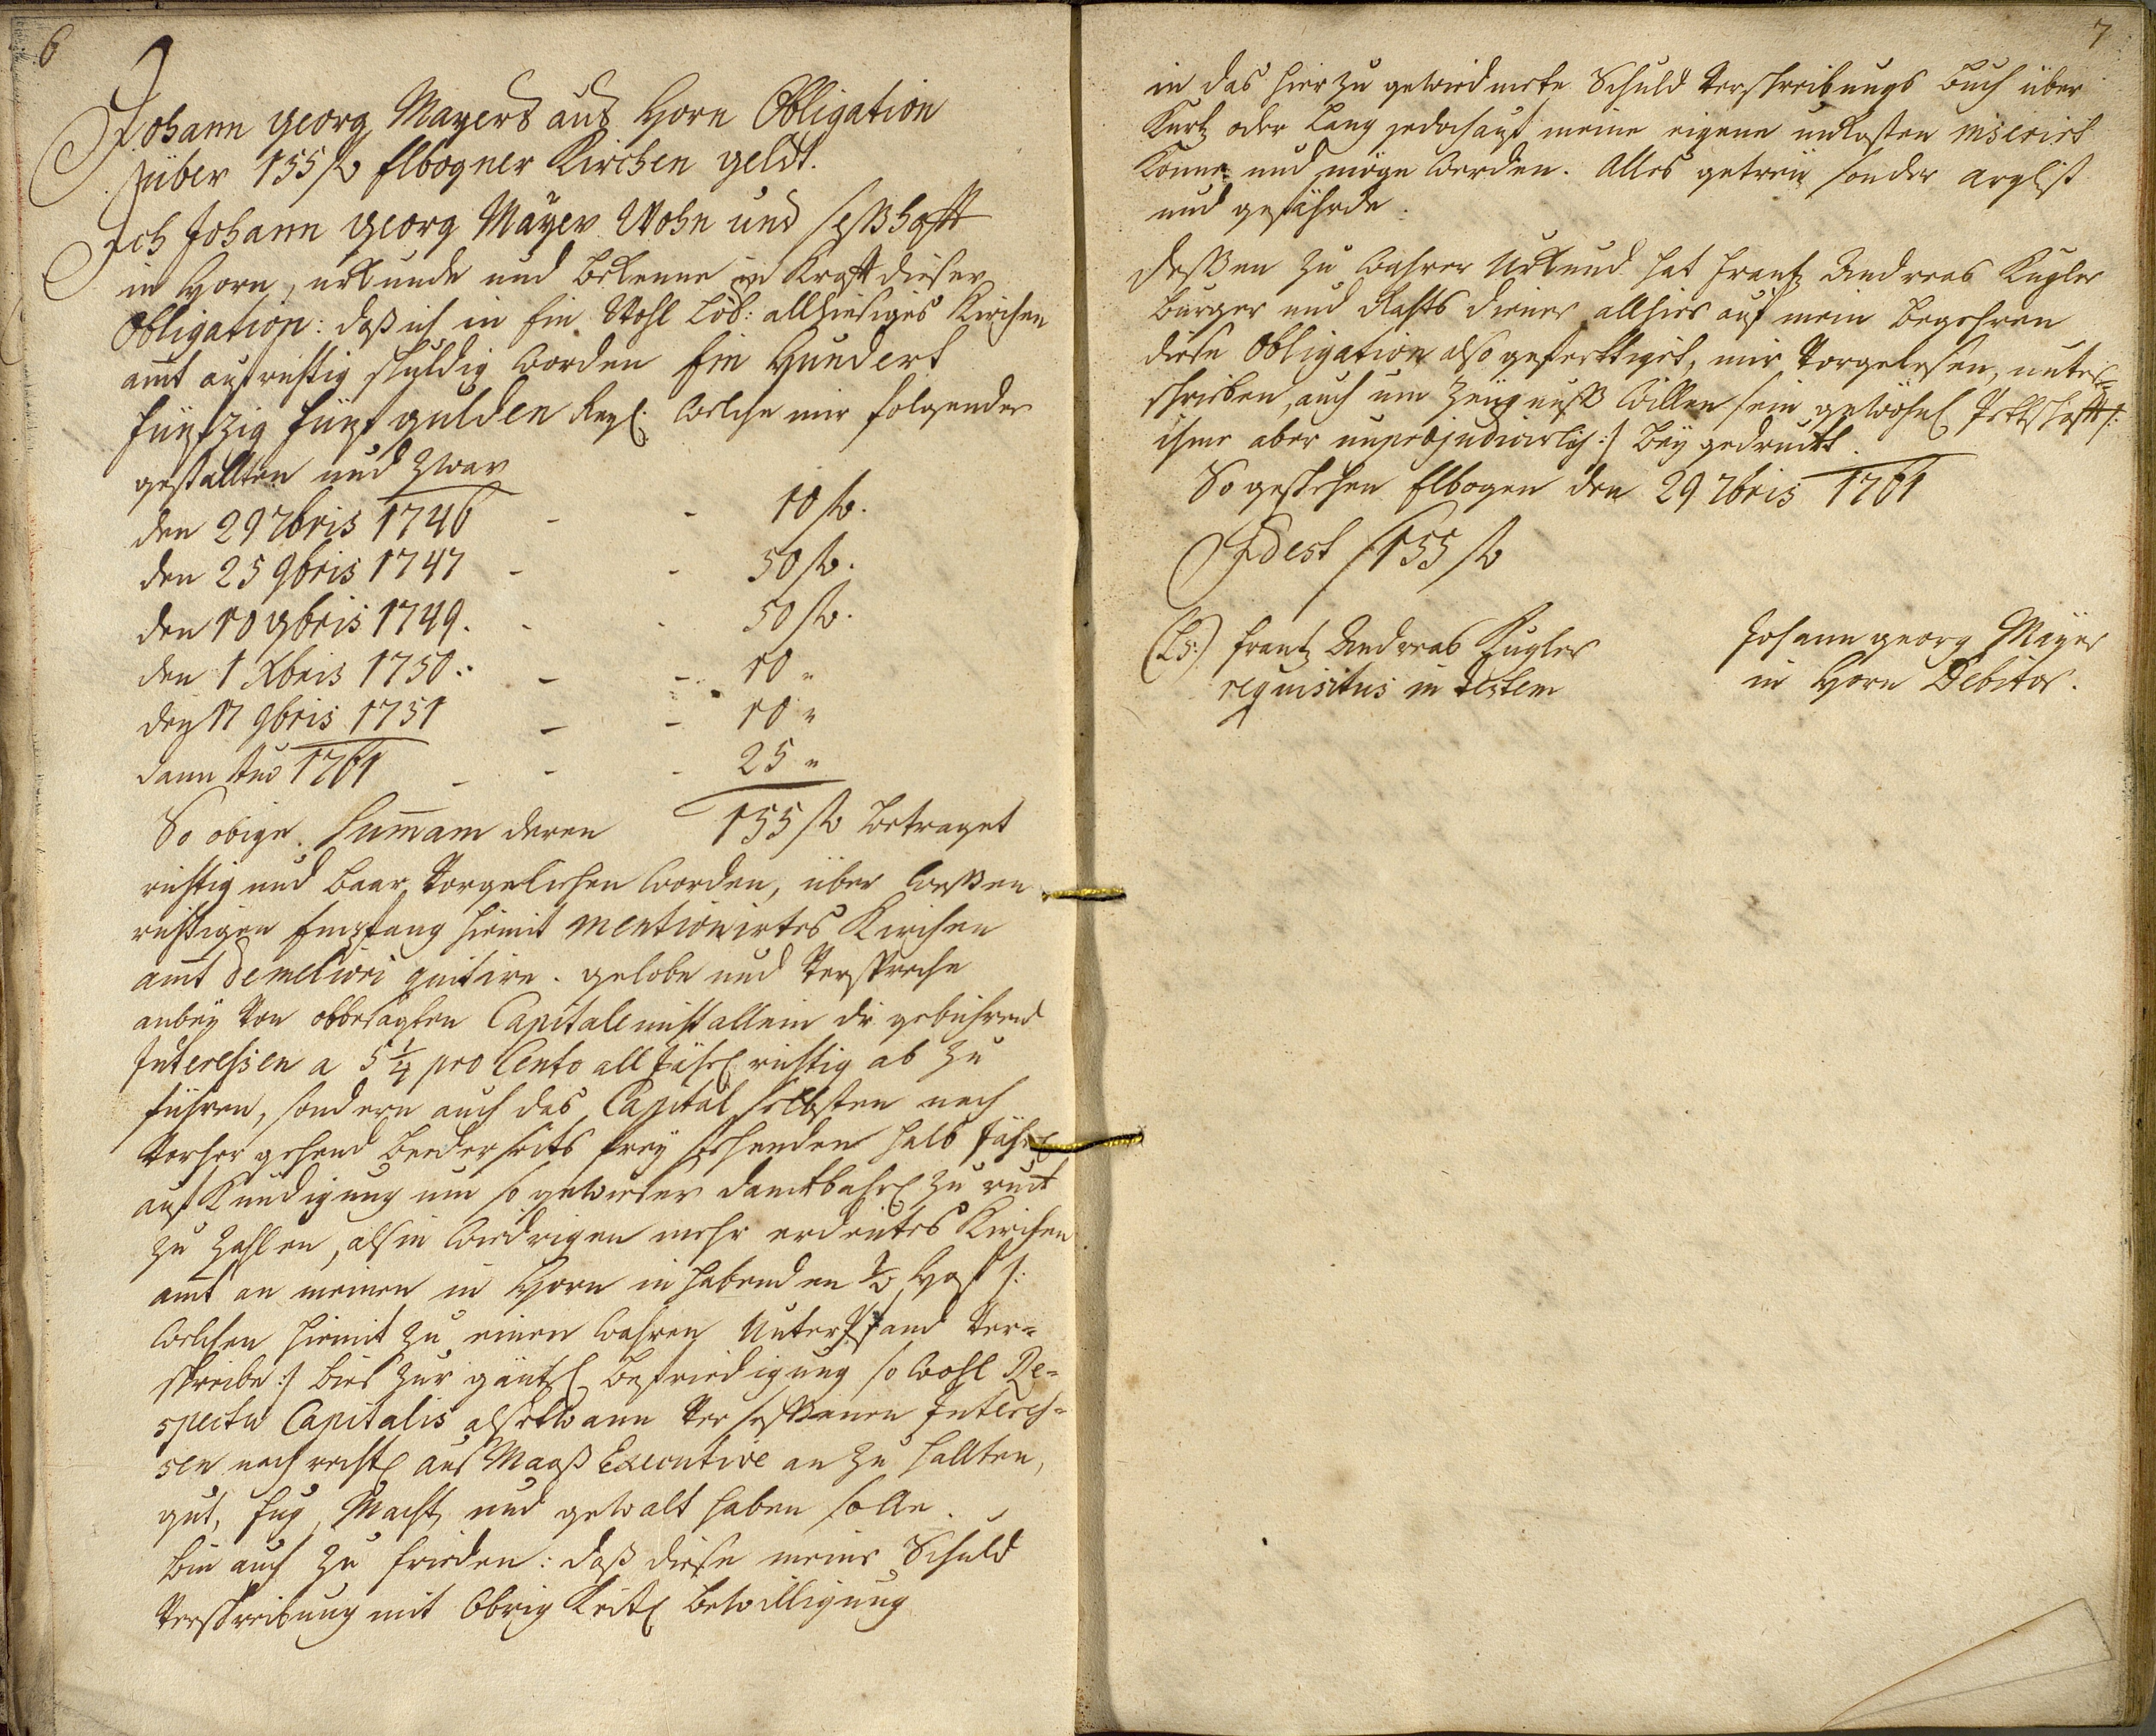 6
Johann georg Mayers aus Horn Obligation
über 155 fl Elbogner Kirchen geldt.
Ich Johann georg Mayer Wohn und seßhafft
in Horn, urkunde und bekenne in Krafft dieser
Obligation: daß ich in Ein Wohl Löb: allhiesiges Kirchen
amt aufrichtig schuldig worden Ein Hundert
fünfzig fünf gulden welche mir folgender
gestallten und zwar
den 29 7bris 1746 - - 10 fl.
den 25 9bris 1747 - - 50 fl.
den 10 9bris 1749. - - 50 fl.
den 1 Xbris 1750: - - 10 "
den 17 9bris 1751 - - 10 "
dann 1761 - - - 25 "
So obige Summam deren 155 fl betraget
richtig und baar vorgeliehen worden, über weßen
richtigen Empfang hiemit mentionirtes Kirchen
amt de meliori quitire. gelobe und verspreche
anbey von obbesagten Capitale nicht allein die gebührend
Interessen a 5 1/4 pro Cento all jährl richtig ab zu
führen, sondern auch das Capital selbsten nach
vorher gehend beederseits frey stehenden halb jährl
auf Kündigung um so gewießer danckbahrl zu ruck
zu zahlen, als in wiedrigen mehr erdeutes Kirchen
amt an meinen in Horn inhabenden Hof /:
welchen hiemit zu einen wahren Unterpfand ver=
schreibe :/ bies zur gäntzl befriedigung so wohl Re=
spectu Capitalis als etwann verseßenen Interes=
sen nach rechtl aus Maaß Executive an zu hallten,
gut, fug, Macht und gewalt haben solle.
bin auch zu frieden: daß diese meine Schuld
verschreibung mit Obrig Keitl bewilligung
7
in das hier zu gewiedmete Schuld Verschreibungs buch über
Kurtz oder Lang jedoch auf meine eigene unkosten inserirt
Könne und möge werden. Alles getreu sonder arglist
und gefährde.
Deßen zu wahrer Urkund hat Frantz Andreas Kugler
burger und Rahts diener allhier auf mein begehren
diese Obligation also gefertiget, mir vorgelesen, unter=
schrieben, auch um zeugnuß willen sein gewöhnl Pettschafft /:
ihme aber unpræjudicirlich :/ bey gedruckt.
So geschehen Elbogen den 29 7bris 1761
Id est 155 fl
(LS:) Frantz Andreas Kugler
requisitus in testem
Johann georg Mayer
in Horn Debitor.